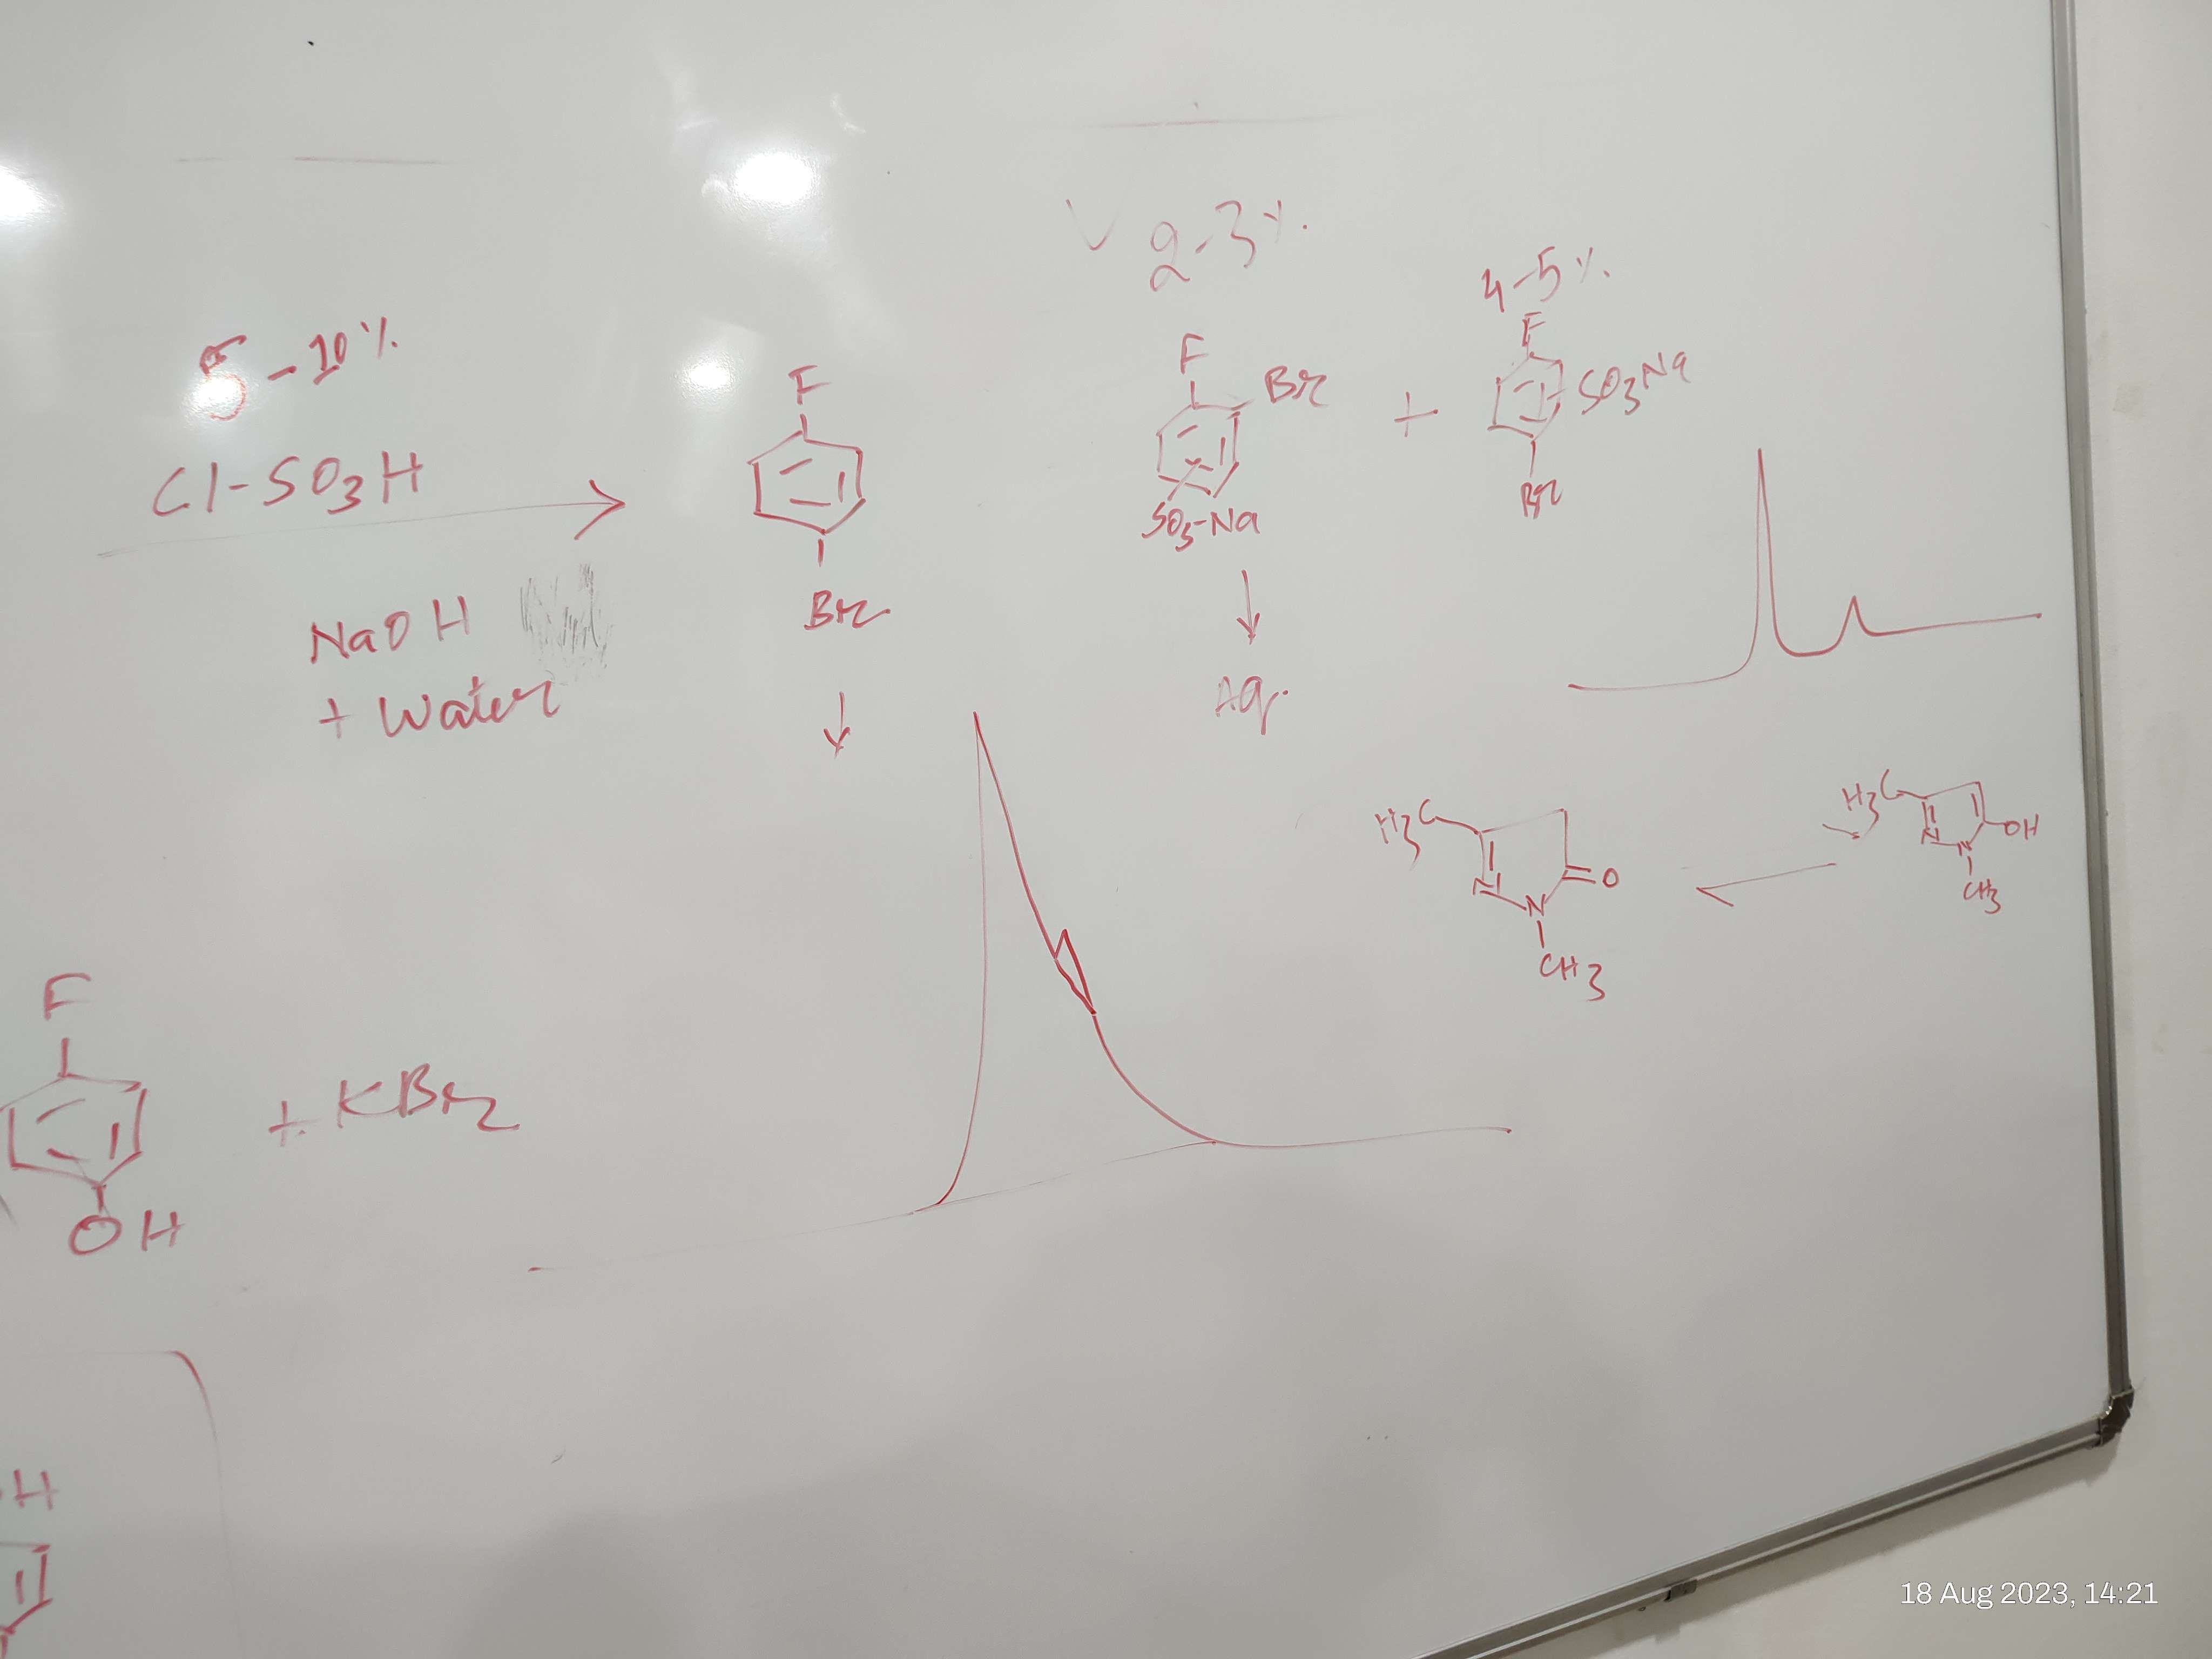 5-10%
Cl-SO3H
NaOH
+ Water
F
Br
2-3%
F
Br
SO3-Na
Aq.
+
4-5%
F
SO3Na
Br
H3C
N
N
O
CH3
H3C
N
N
OH
CH3
F
OH
+ KBr
H
18 Aug 2023, 14:21